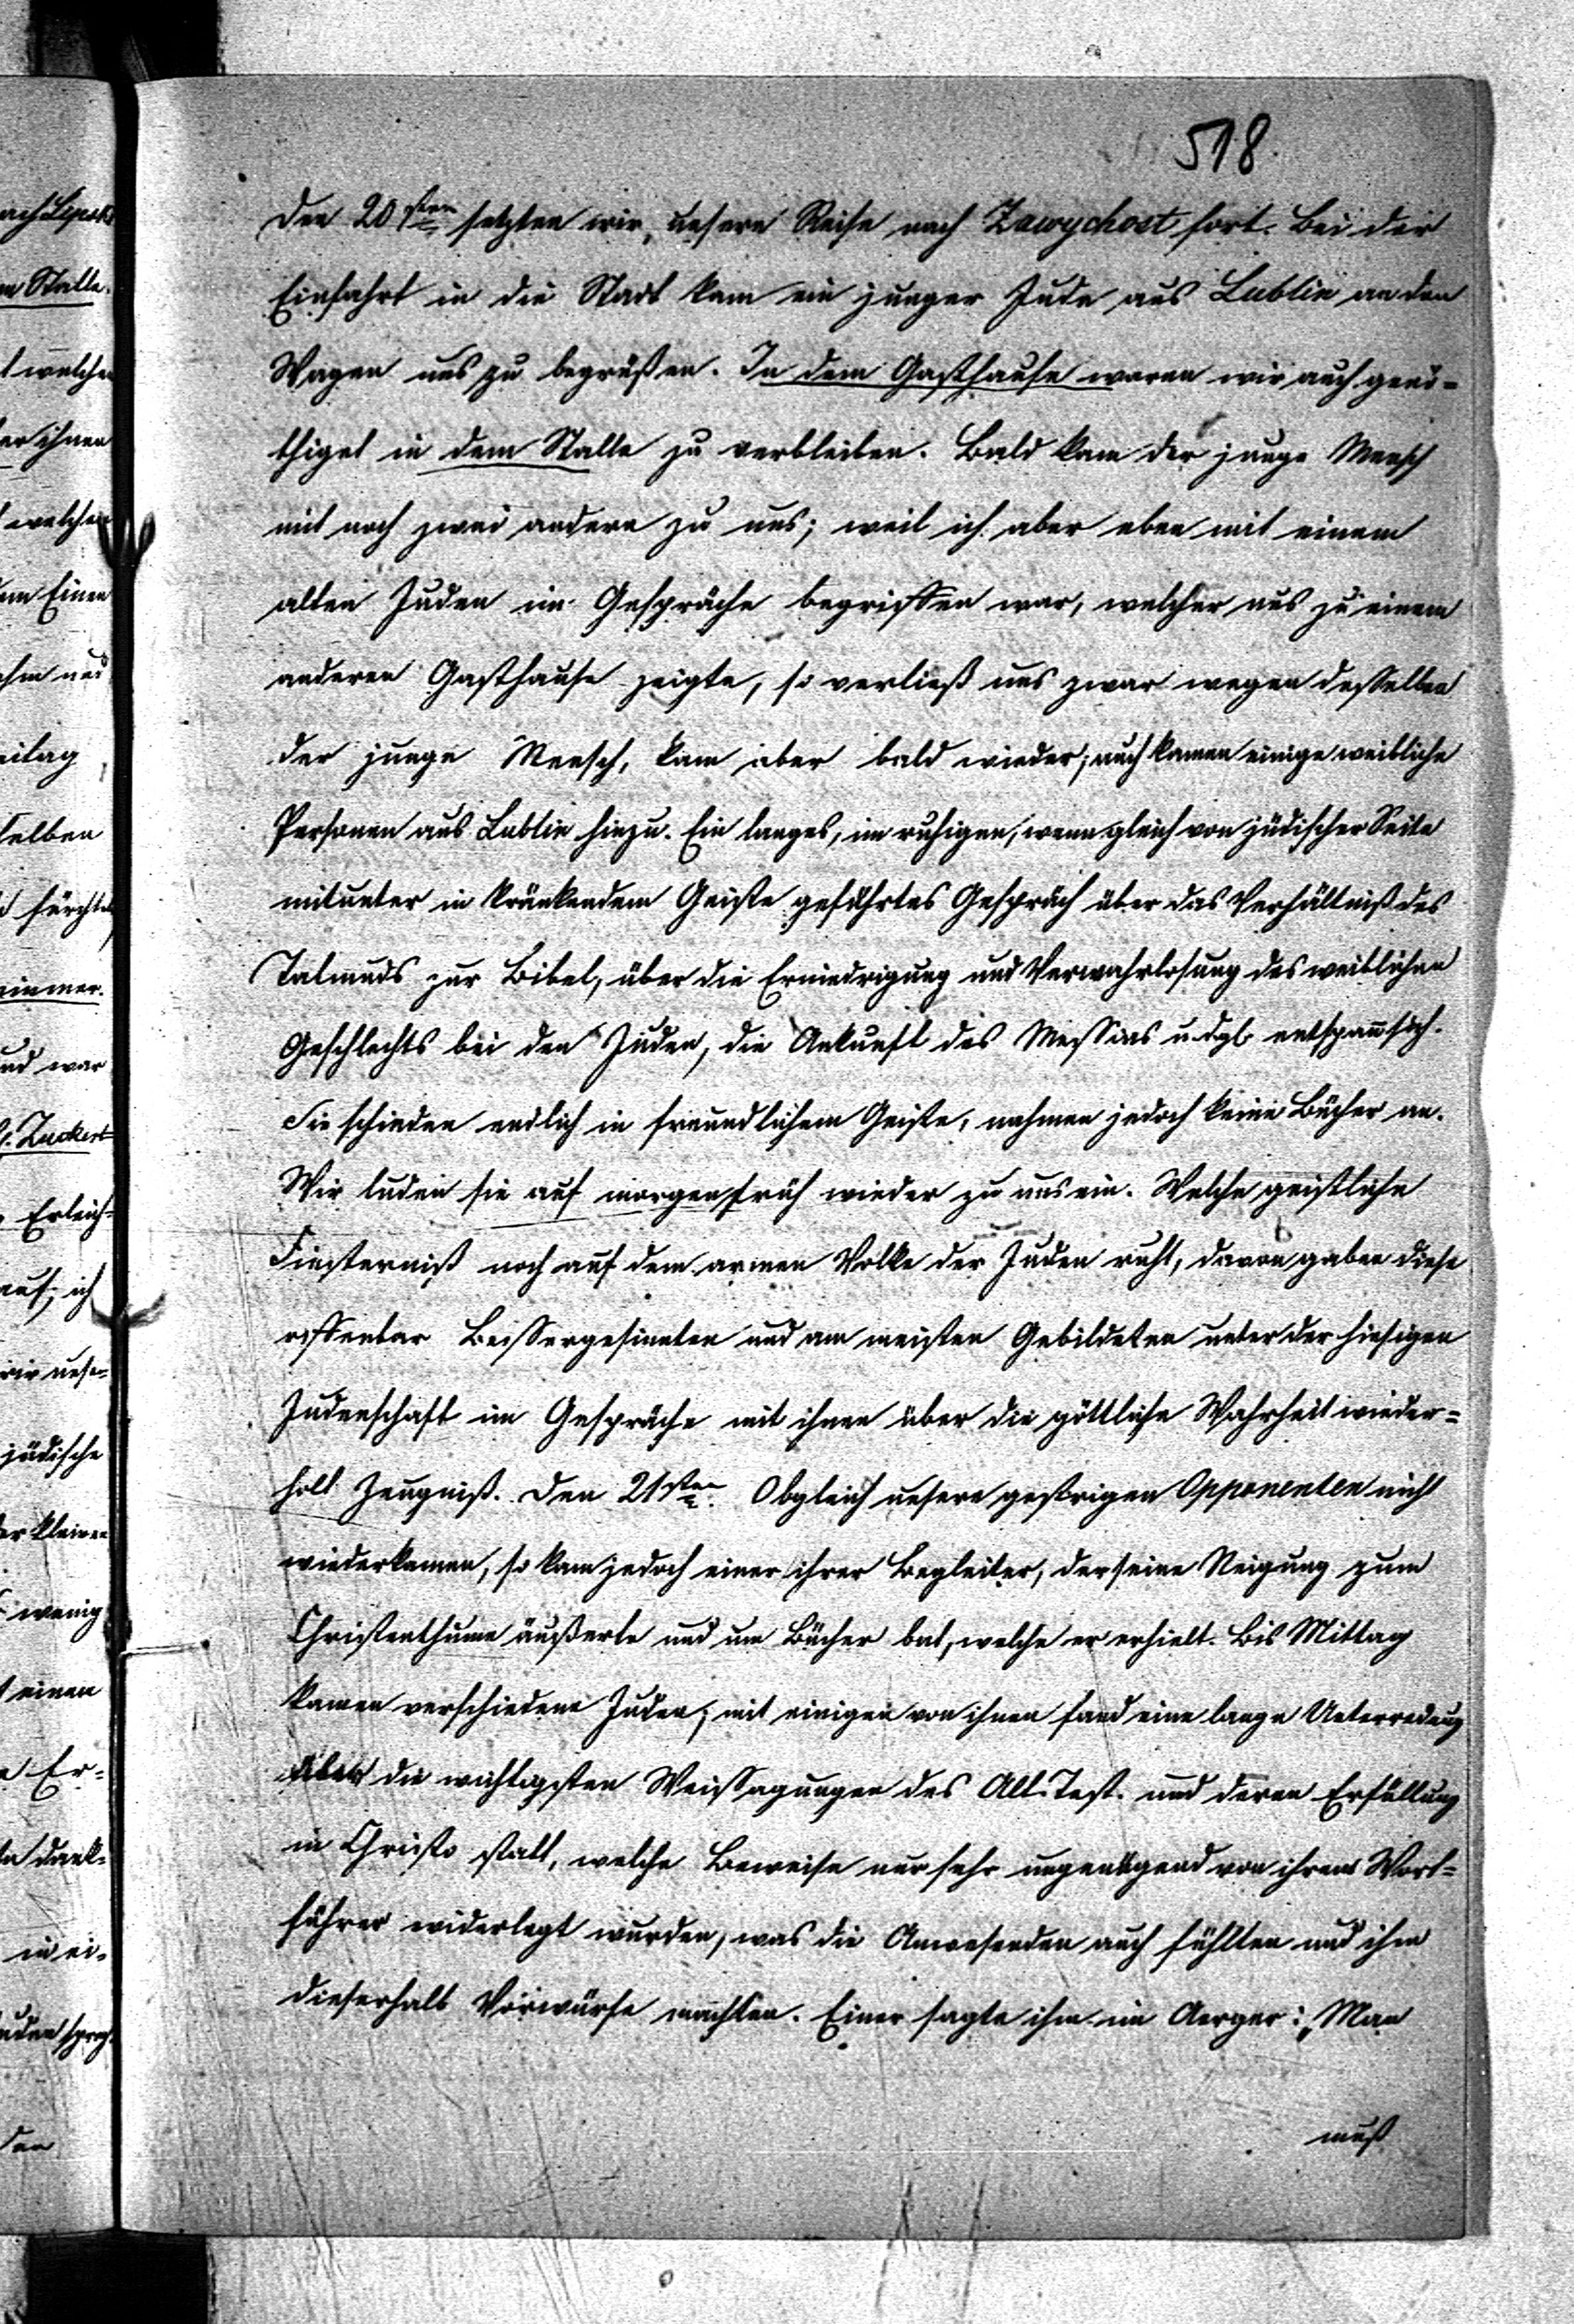 518.
Den 20sten setzten wir unsere Reise nach Zawychost fort. Bei der
Einfahrt in die Stadt kam ein junger Jude aus Lublin an den
Wagen uns zu begrüßen. In dem Gasthause waren wir auch genö-
thiget in dem Stalle zu verbleiben. Bald kam der junge Mensch
mit noch zwei andern zu uns; weil ich aber eben mit einem
alten Juden im Gespräche begriffen war, welcher uns zu einem
anderen Gasthause zeigte, so verließ uns zwar wegen desselben
der junge Mensch, kam aber bald wieder; auch kamen einige weibliche
Personen aus Lublin hinzu. Ein langes, im ruhigen, wenn gleich von jüdischer Seite
mitunter in kränkendem Geiste geführtes Gespräch über das Verhältniß des
Talmuds zur Bibel, über die Erniedrigung und Verwahrlosung des weiblichen
Geschlechts bei den Juden, die Ankunft des Messias u. dgl. entspann sich.
Sie schieden endlich in freundlichem Geiste, nahmen jedoch keine Bücher an.
Wir luden sie auf morgen früh wieder zu uns ein. Welche geistliche
Finsterniß noch auf dem armen Volke der Juden ruht, davon gaben diese
offenbar Bessergesinnten und am meisten Gebildeten unter der hiesigen
Judenschaft im Gespräche mit ihnen über die göttliche Wahrheit wieder-
holt Zeugniß. Den 21sten. Obgleich unsere gestrigen Opponenten nicht
wiederkamen, so kam jedoch einer ihrer Begleiter, der seine Neigung zum
Christenthume äußerte und um Bücher bat, welche er erhielt. Bis Mittag
kamen verschiedene Juden; mit einigen von ihnen fand eine lange Unterredung
über die wichtigsten Weissagungen des Alt. Test. und deren Erfüllung
in Christo statt, welche Beweise nur sehr ungenügend von ihrem Wort-
führer widerlegt wurden, was die Anwesenden auch fühlten und ihm
dieserhalb Vorwürfe machten. Einer sagte ihm im Aerger: „Man
muß